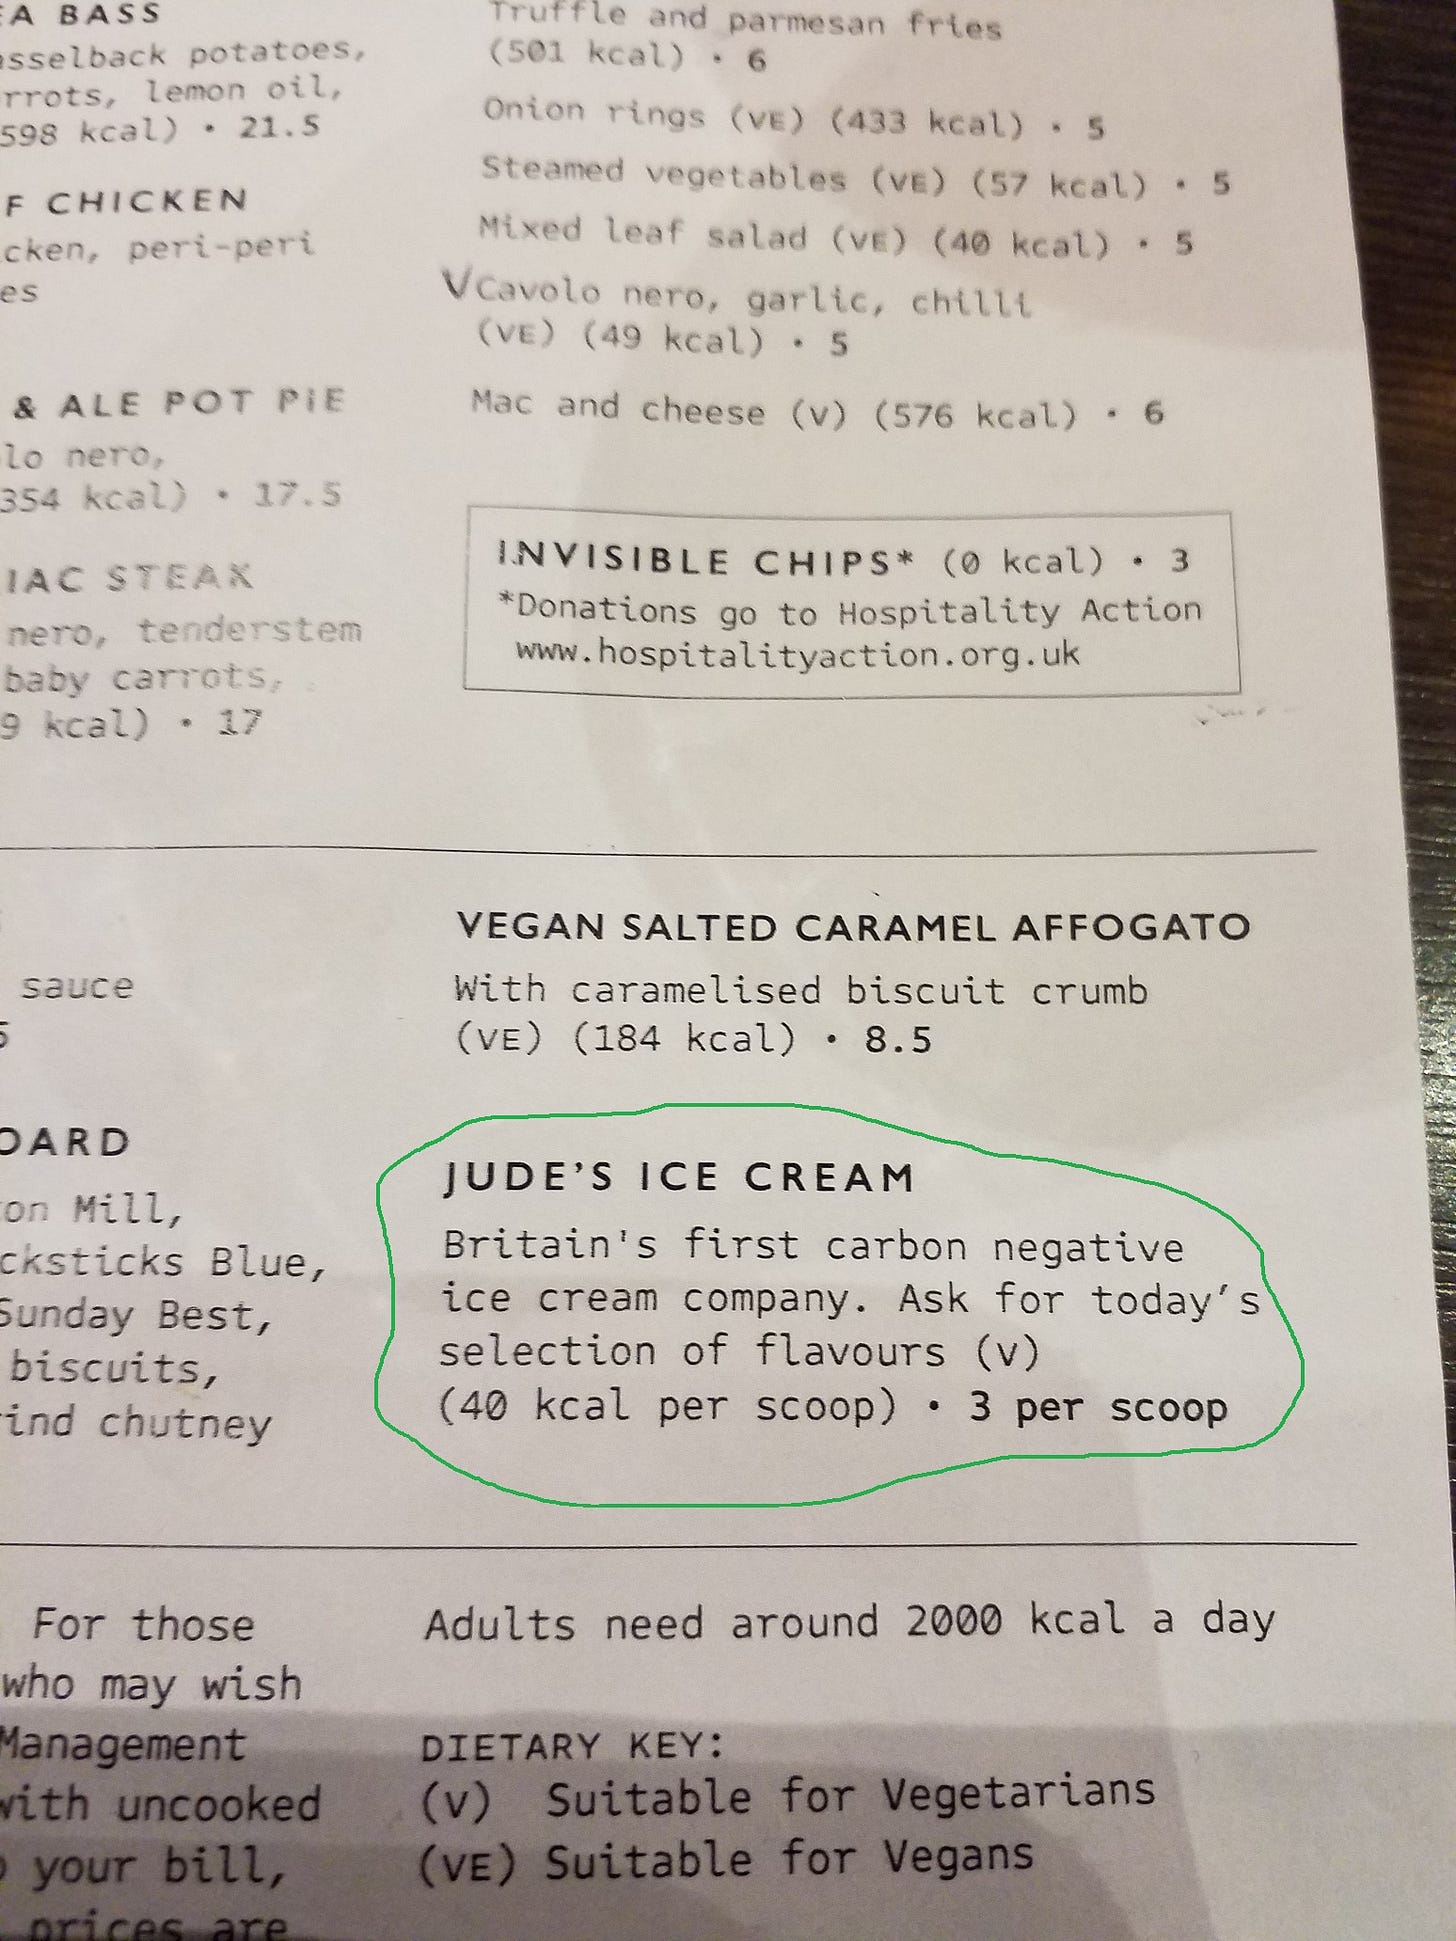 A BASS
asselback potatoes,
rrots, lemon oil,
598 kcal) • 21.5
F CHICKEN
cken, peri-peri
es
& ALE POT PiE
lo nero,
354 kcal) • 17.5
IAC STEAK
nero, tenderstem
baby carrots,
9 kcal) • 17
Truffle and parmesan fries
(501 kcal) • 6
Onion rings (VE) (433 kcal) • 5
Steamed vegetables (VE) (57 kcal) • 5
Mixed leaf salad (VE) (40 kcal) • 5
VCavolo nero, garlic, chilli
(VE) (49 kcal) • 5
Mac and cheese (V) (576 kcal) • 6
INVISIBLE CHIPS* (0 kcal) • 3
*Donations go to Hospitality Action
www.hospitalityaction.org.uk
sauce
5
OARD
on Mill,
cksticks Blue,
Sunday Best,
biscuits,
rind chutney
VEGAN SALTED CARAMEL AFFOGATO
With caramelised biscuit crumb
(VE) (184 kcal) • 8.5
JUDE'S ICE CREAM
Britain's first carbon negative
ice cream company. Ask for today's
selection of flavours (v)
(40 kcal per scoop) • 3 per scoop
For those
who may wish
Management
with uncooked
your bill,
prices are
Adults need around 2000 kcal a day
DIETARY KEY:
(v) Suitable for Vegetarians
(VE) Suitable for Vegans